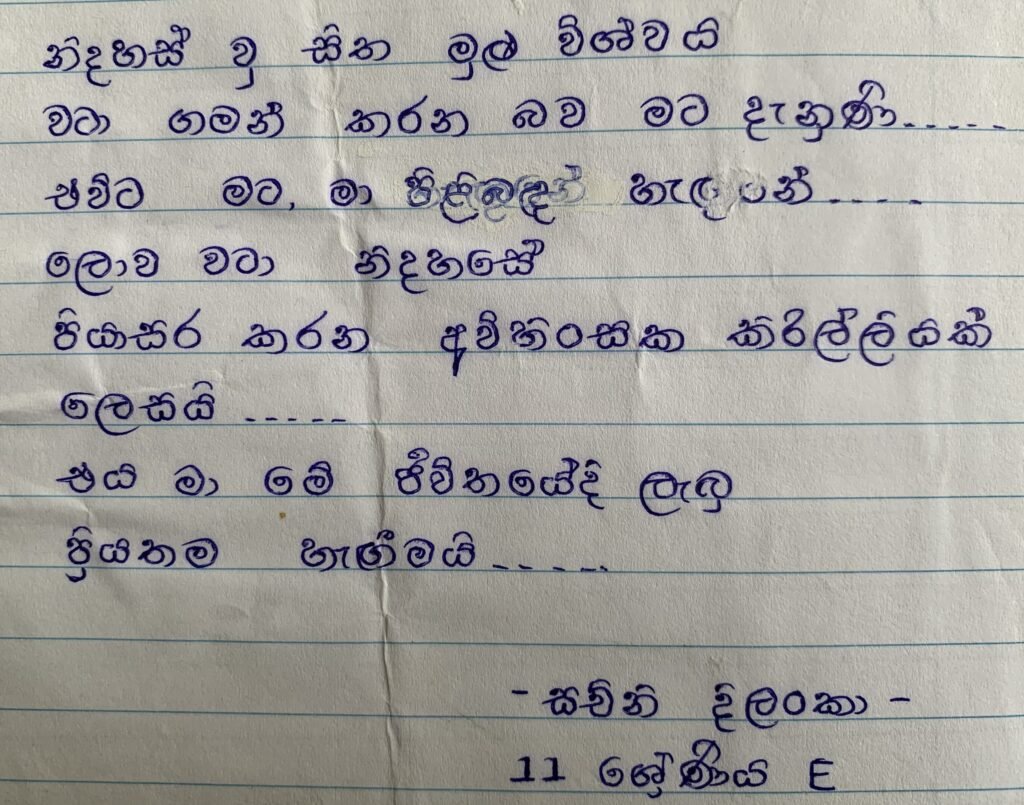 නිදහස් වූ සිත මුල් විශ්වයි
වටා ගමන් කරන බව මට දැනුණි.....
එවිට මට, මා පිළිබඳ හැඟුනේ.....
ලොව වටා නිදහසේ
පියාසර කරන අවිහිංසක කිරිල්ලියක්
ලෙසයි.....
එය මා මේ ජීවිතයේදී ලැබූ
ප්‍රියතම හැඟීමයි.....
- සචිනි දිලංකා -
11 ශ්‍රේණිය E